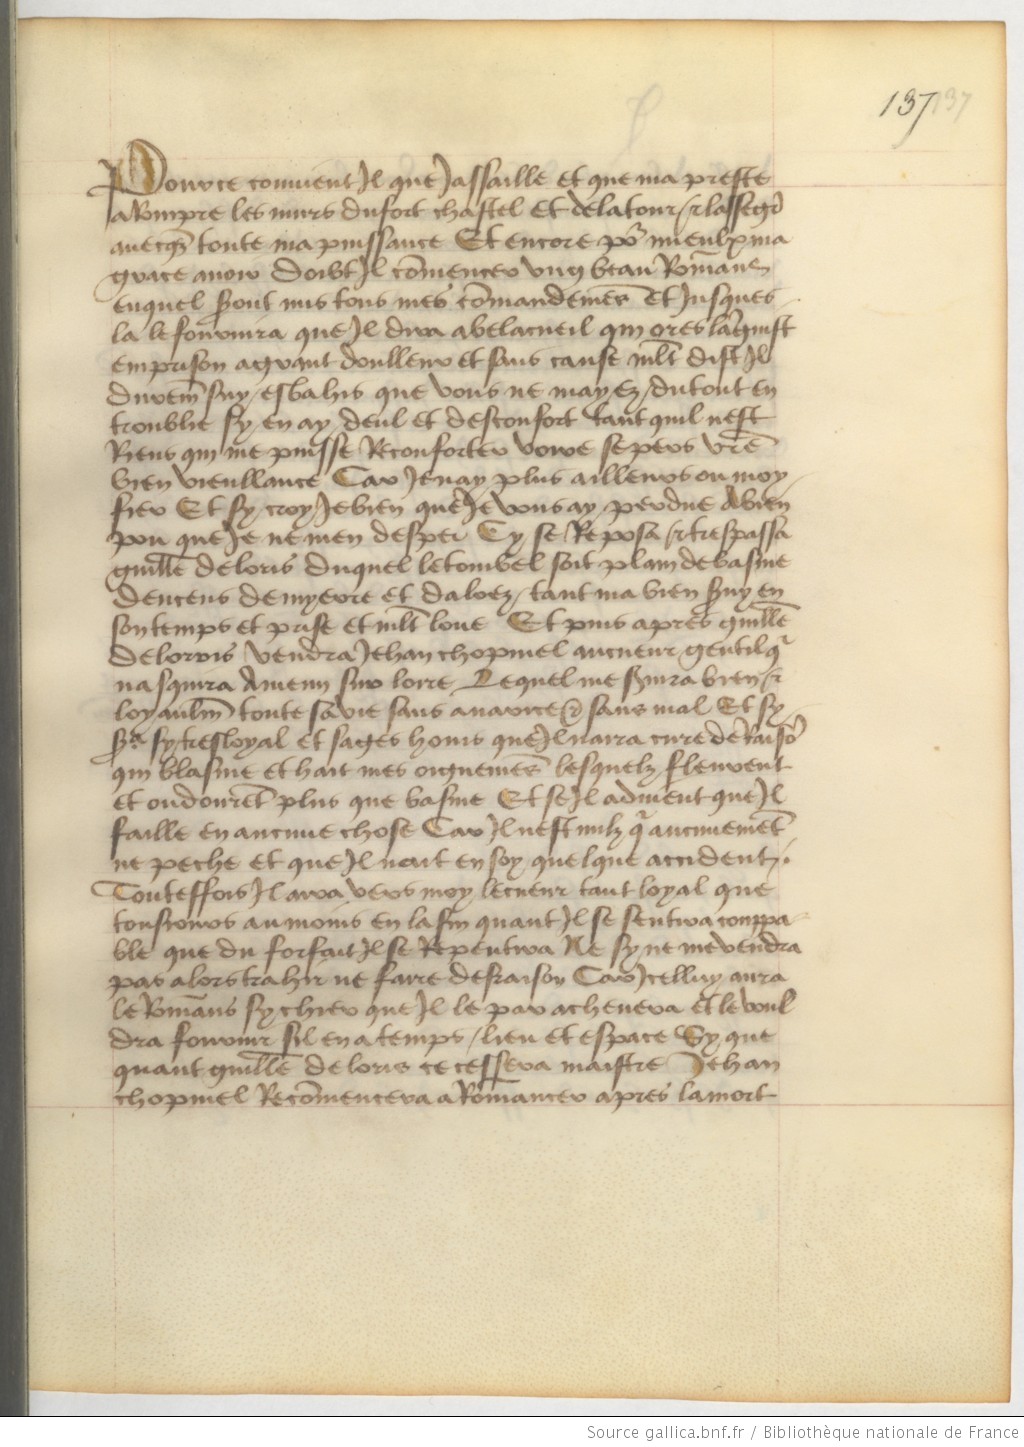 137 137
Pource conuient Il que Jassaille et que ma preste
a Rompre les murs du fort chastel Et de la tour / et lassegr̄
auecqз toute ma puissance Et encore po᷑ mieulx ma
grace auoir Doibt Il cōmencer vng beau Romans
ouquel seront mis tous mes cōmandemēs Et Jusques
la le fournira que Il dira a belacueil qui ores lāguist
en prison a grant doulleur et sans cause mlt dist Il
durem̄ suy / esbahis que vous ne mayez / du tout en
troublie sy / en ay / deul et desconfort tant quil nest
Riens qui me puisse Reconforter voire se pers vr̄e
bien vieullance Car Je nay / plus ailleurs ou moy /
fier Et sy / croy / Je bien que Je vous ay / perdue A bien
pou que Je ne men desper Cy se Reposa / et trespassa
guill̄e de loris duquel le tombel soit plain de basme
dencens de myrre et daloez / tant ma bien seruy en
son temps et prise et mlt loue Et puis apres guill̄e
de lorris vendra Jehan chopinel au cueur gentil q̄
nasquira A meun sur loire Lequel me seruira bien / et
loyaulm̄ toute sa vie sans auarice et sans mal Et sy
sera sy / tresloyal et sages homs que Il naura cure de Raisō
qui blasme et hait mes oignemēs lesquelz fleurent
et oudourēt plus que basme Et se Il aduient que Il
faille en aucune chose Car Il nest nulz q̄ aucunemēt
ne peche et que Il nait en soy quelque accident /.
Touteffois Il aura vers moy le cueur tant loyal que
tousiours au moins en la fin quant Il se sentira couppa
ble que du forfait Il se Repentira Ne sy / ne me vendra
pas alors trahir ne faire desraison Car Icelluy aura
le Romans sy chier que Il le par acheuera et le voul
dra fournir sil en a temps / lieu et espace Sy que
quant guill̄e de loris ce cessera maistre Jehan
chopinel Recōmencera a Romancer apres la mort
Source gallica.bnf.fr / Bibliothèque nationale de France